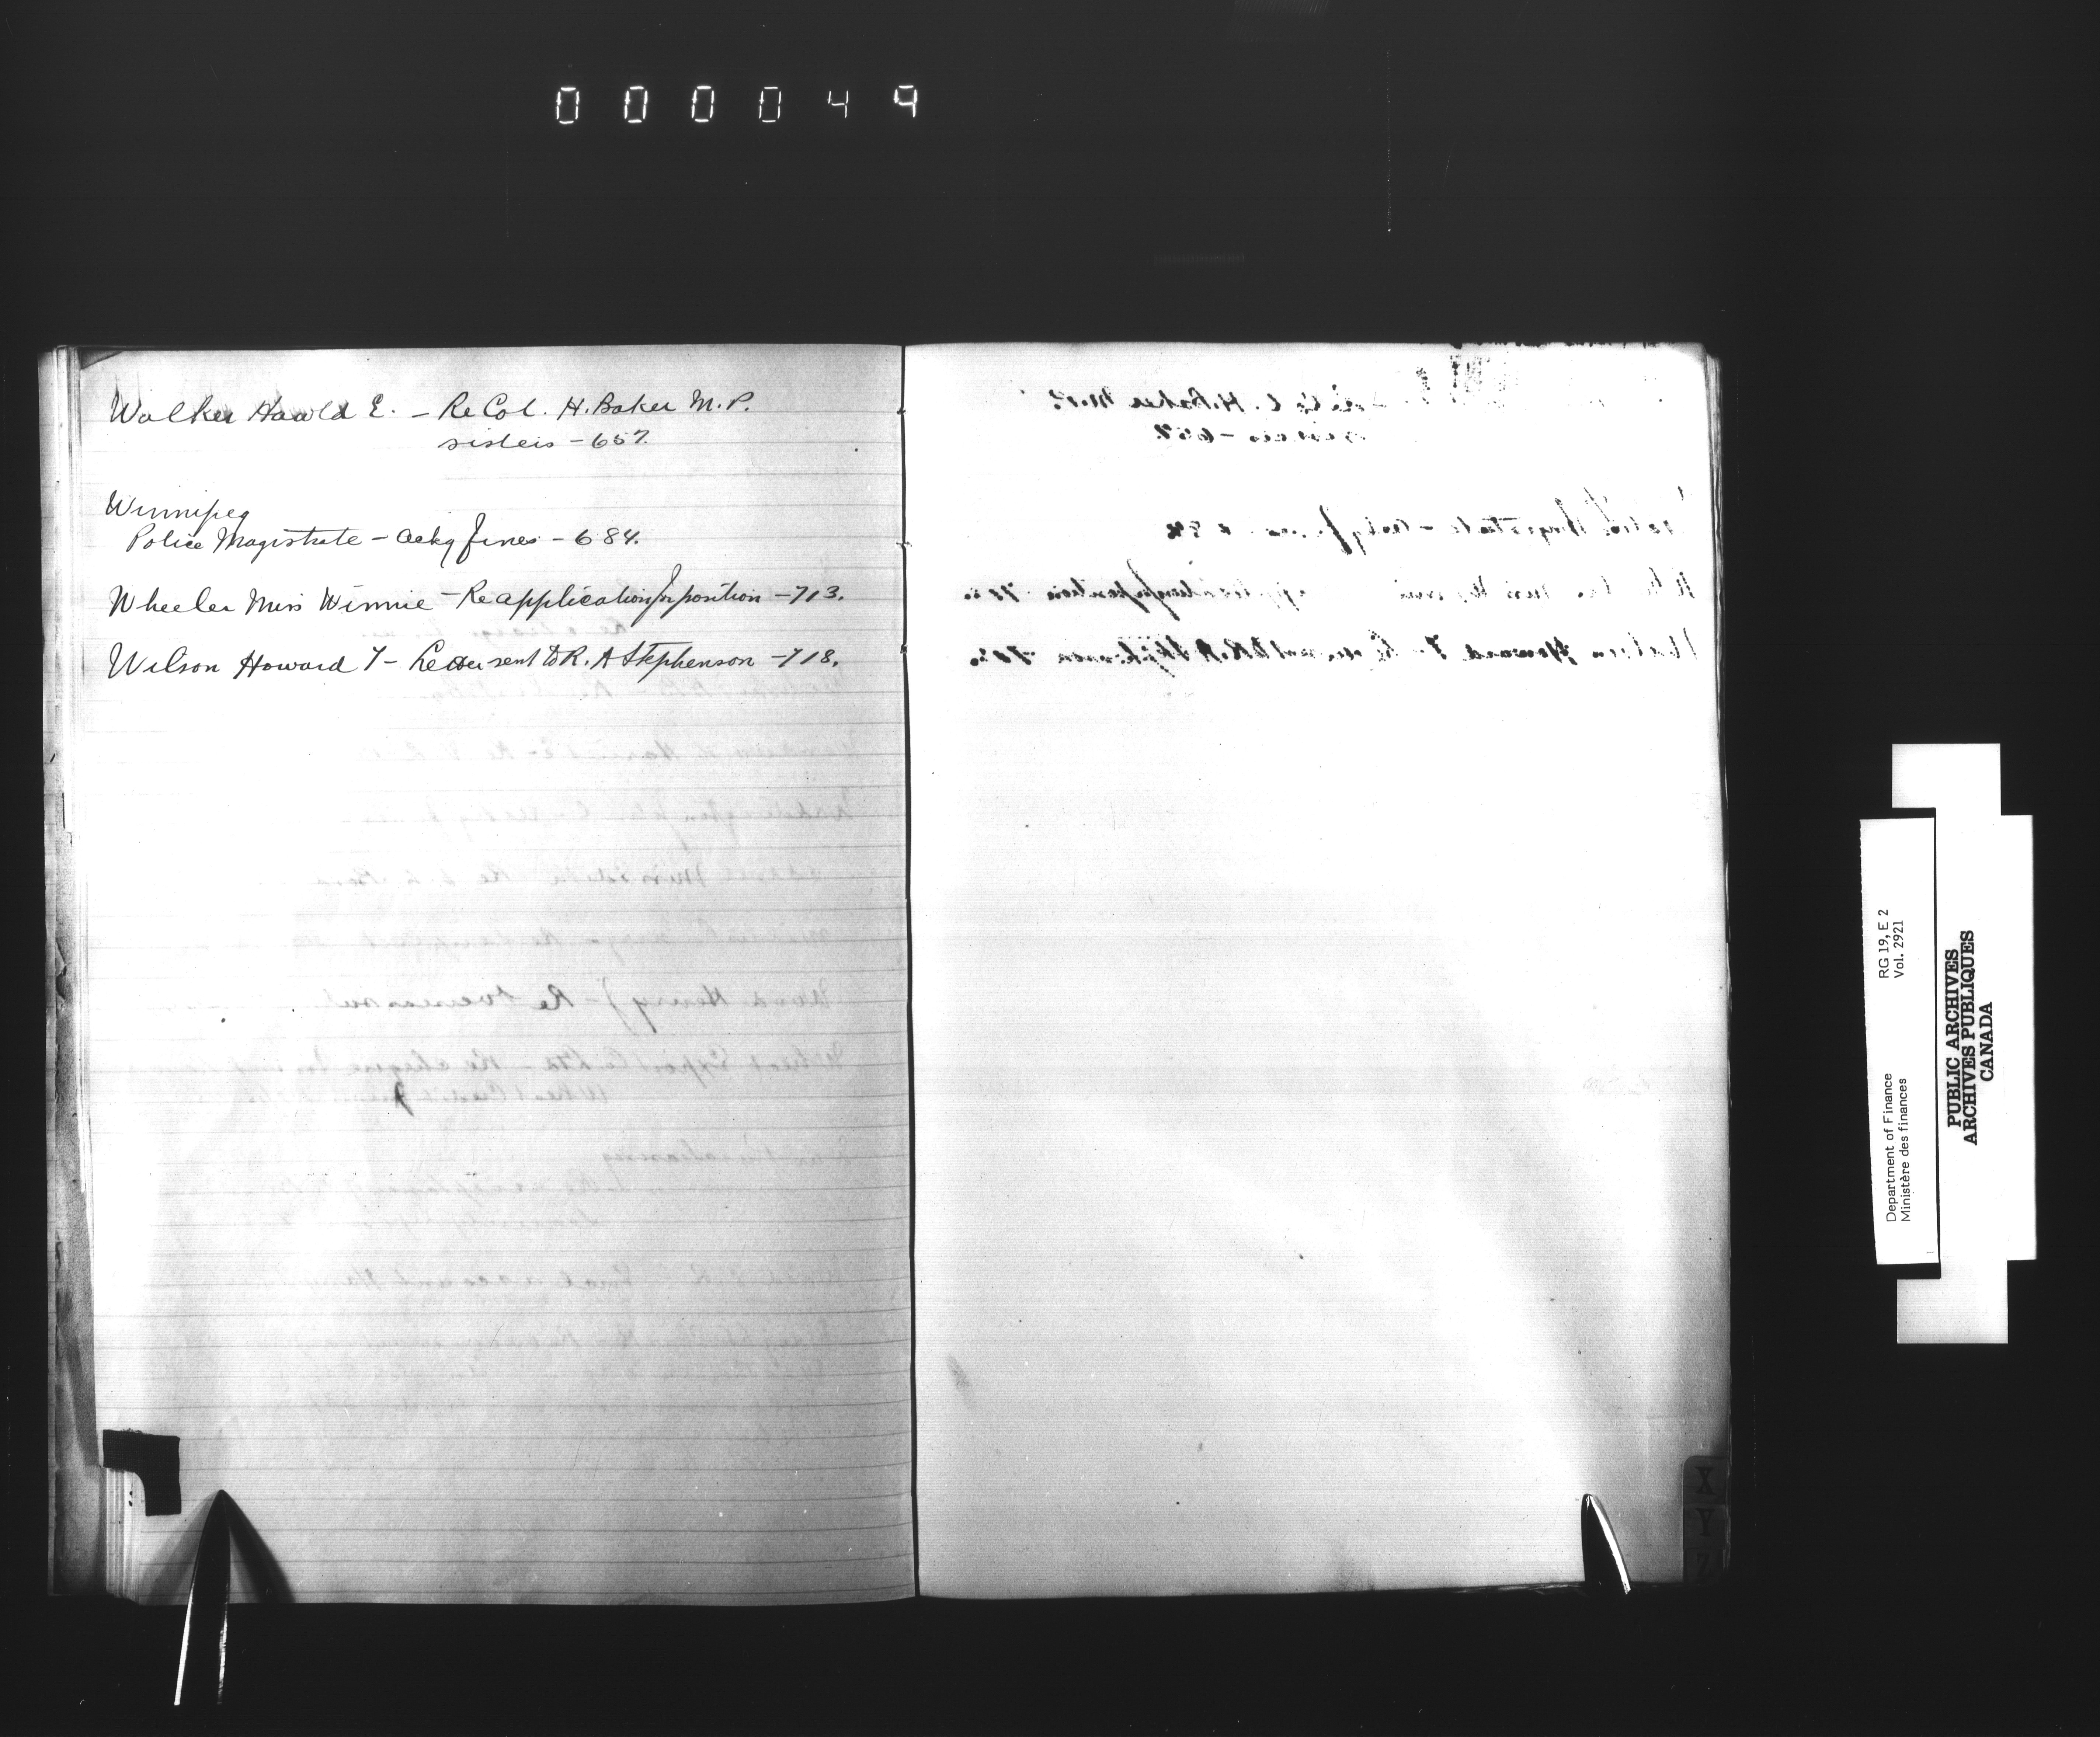 000049
Walker Harold E. - Re Col. H. Baker M.P.
sisters - 657.
Winnipeg
Police Magistrate - ackg fines - 684.
Wheeler Miss Winnie - Re application for position - 713.
Wilson Howard T - Letter sent to R. A Stephenson - 718.
X
Y
Z
Department of Finance RG 19, E 2
Ministère des finances Vol. 2921
PUBLIC ARCHIVES
ARCHIVES PUBLIQUES
CANADA